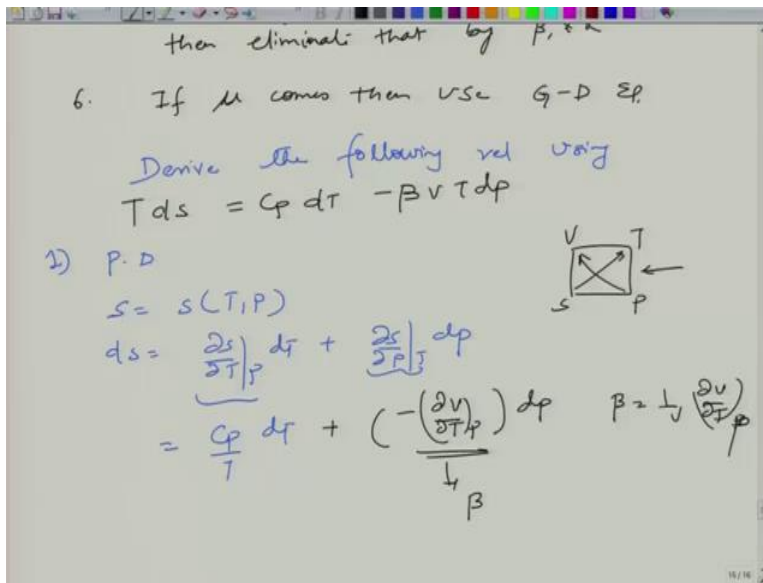 then eliminate that by β, & α
6. If μ comes then use G-D Eq.
Derive the following rel using
T ds = Cp dT - β v T dp
1) P.D
V T
S P
s = s(T,P)
ds = ∂s/∂T|p dT + ∂s/∂p|T dp
= Cp/T dT + (-(∂v/∂T)p) dp β = 1/v (∂v/∂T)p
β
16/16